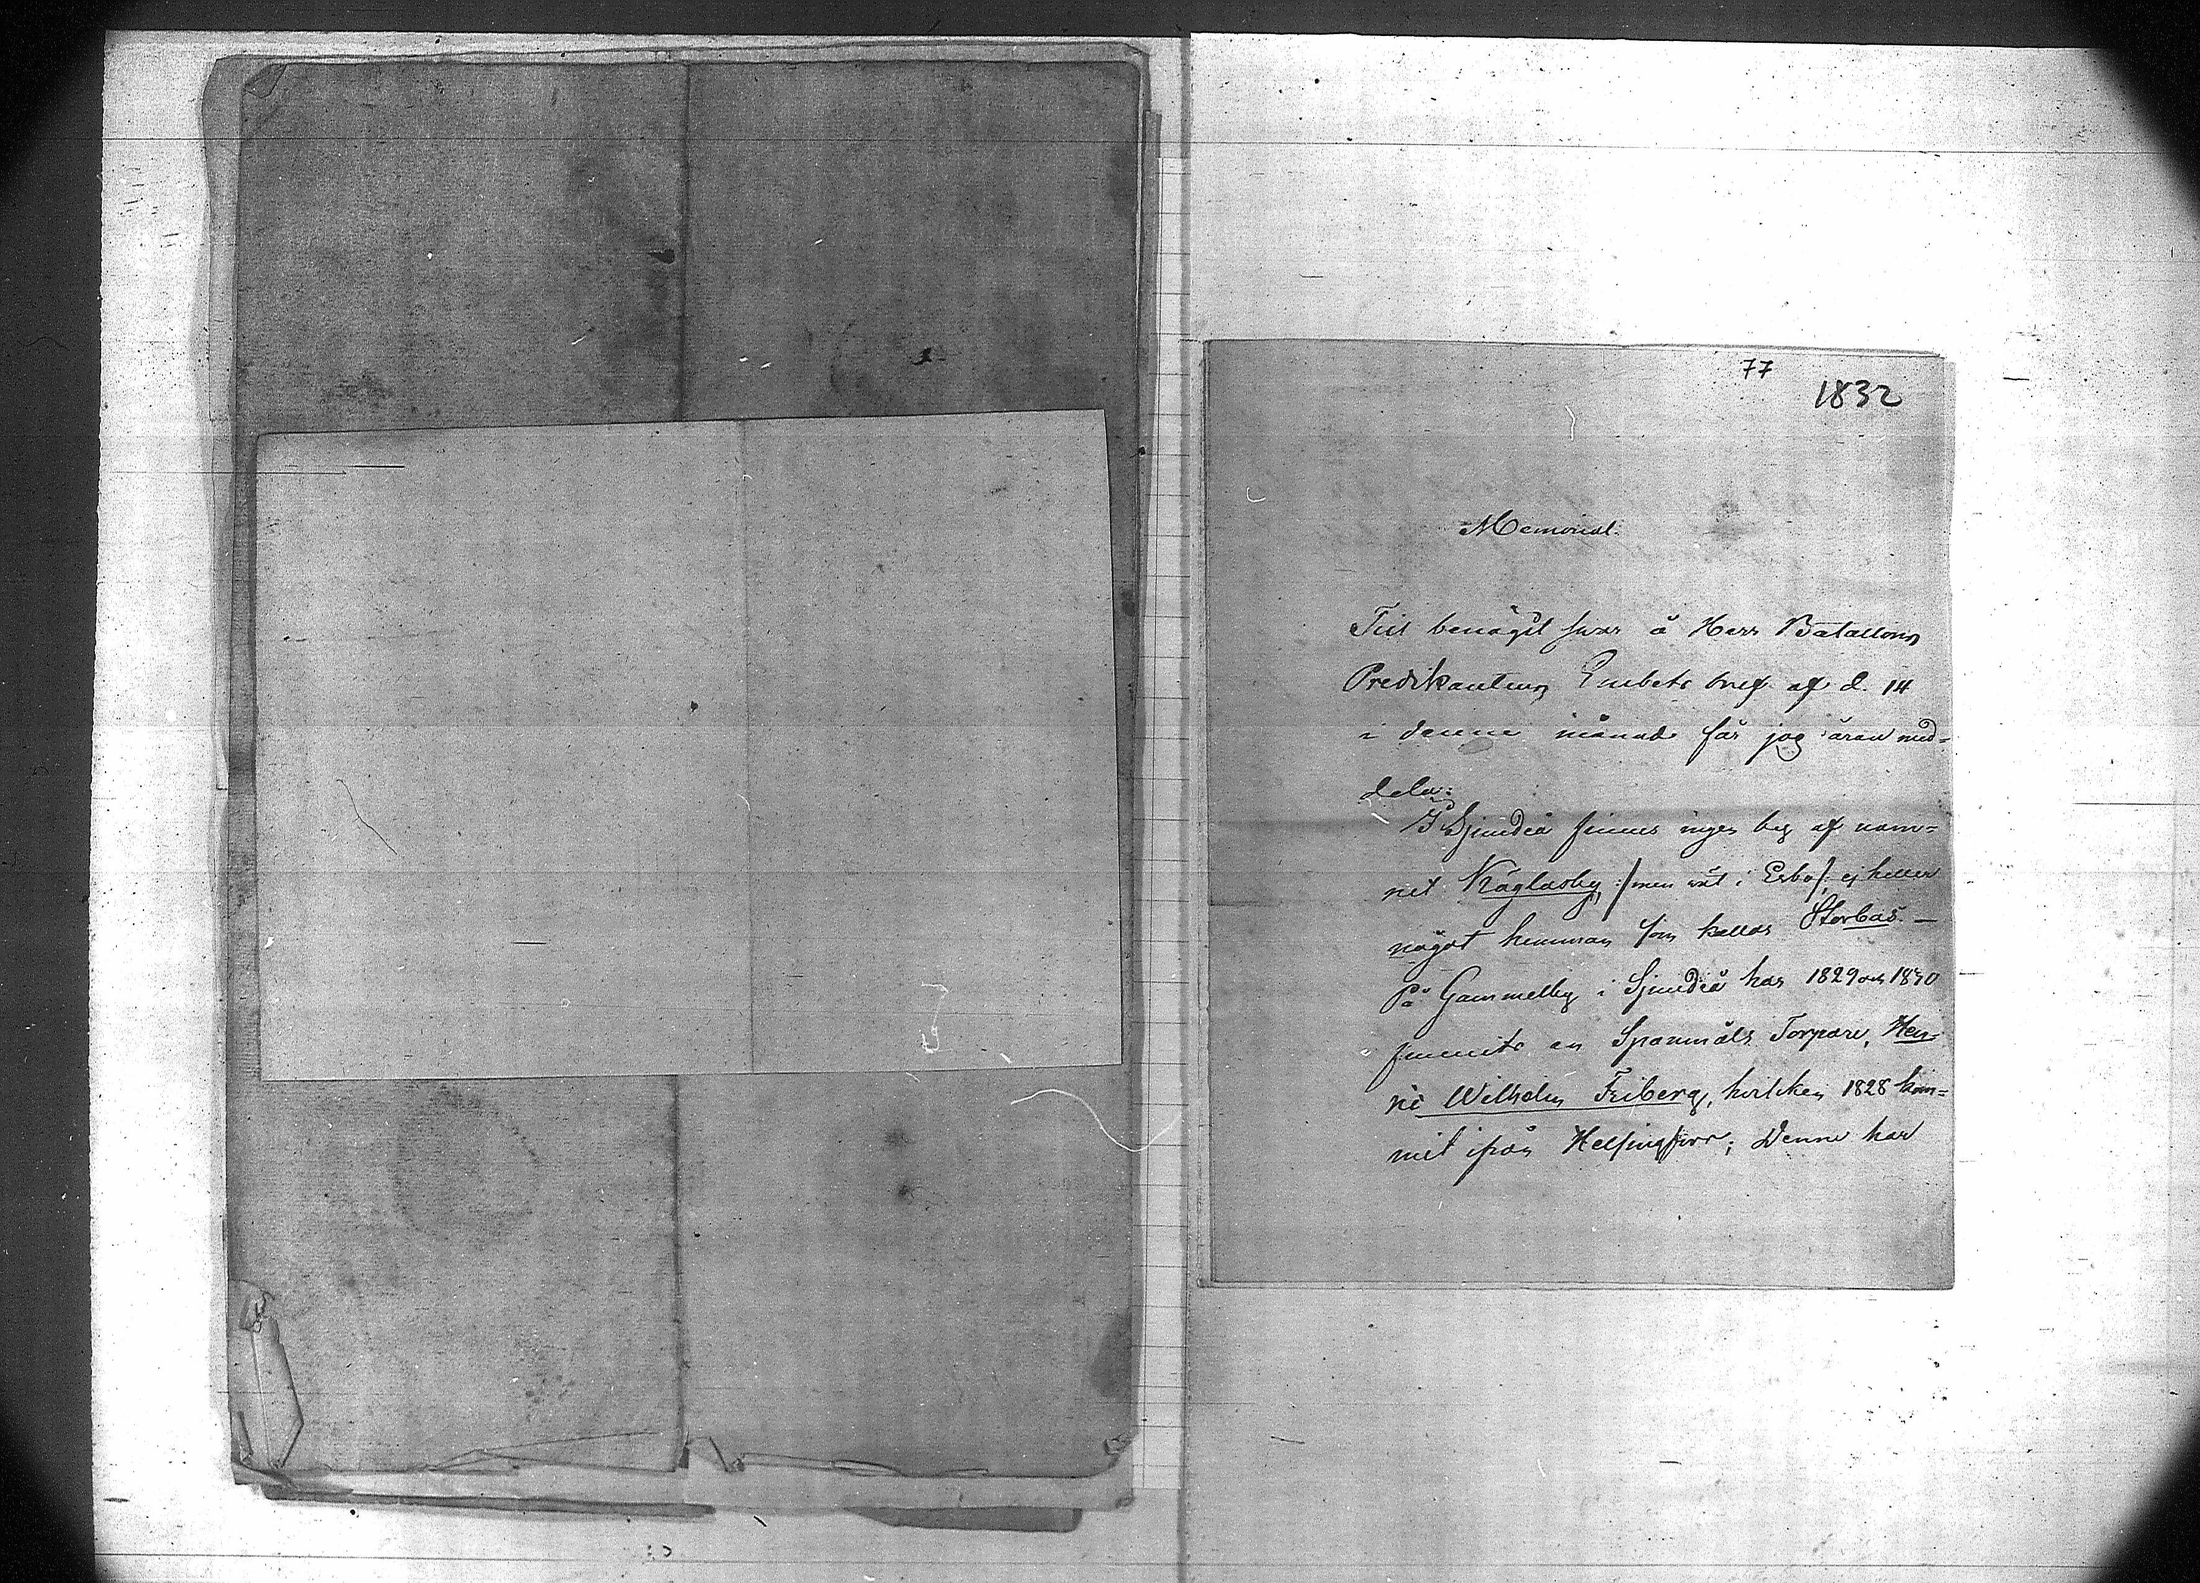 77
1832
Memorial.
Till benäget svar å Herr Bataillons
Predikantens Embets bref af d. 14
i denne månad får jag äran med=
dela:
I Sjundeå finnes ingen by af nam=
net Köglasby, /: men väl i Esbo :/ ej heller
något hemman som kallas Storbas. —
På Gammelby i Sjundeå har 1829 och 1830
funnits en Spanmåls Torpare, Hen=
ric Wilhelm Friberg, hvilken 1828 kom=
mit ifrån Helsingfors; Denne har